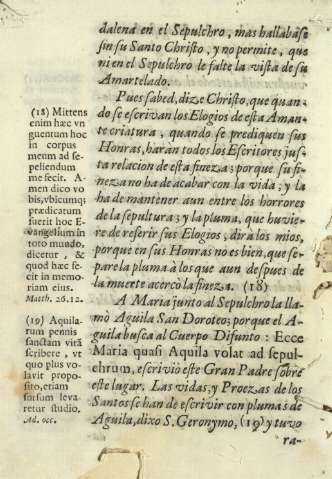 dalena en el Sepulchro, mas hallabase
sin su Santo Christo, y no permite, que
ni en el Sepulchro le falte la vista de su
Amartelado.
Pues sabed, dize Christo, que quan-
do se escrivan los Elogios de esta Aman-
te criatura, quando se prediquen sus
Honras, haràn todos los Escritores jus-
ta relacion de esta fineza; porque su fi-
neza no ha de acabar con la vida; y la
ha de mantener aun entre los horrores
de la sepultura; y la pluma, que huvie-
re de referir sus Elogios, dirà los mios,
porque en sus Honras no es bien, que se-
pare la pluma à los que aun despues de
la muerte acercò la fineza. (18)
A Maria junto al Sepulchro la lla-
mò Aguila San Doroteo; porque el A-
guila busca al Cuerpo Difunto: Ecce
Maria quasi Aquila volat ad sepul-
chrum, escrivio este Gran Padre sobre
este lugar. Las vidas, y Proezas de los
Santos se han de escrivir con plumas de
Aguila, dixo S. Geronymo, (19) y tuvo
ra-
(18) Mittens
enim hæc vn
guentum hoc
in corpus
meum ad se-
peliendum
me fecit. A-
men dico vo
bis, vbicumq;
prædicatum
fuerit hoc E-
vangelium in
toto mundo,
dicetur, &
quod hæc fe-
cit in memo-
riam eius.
Matth. 26.12.
(19) Aquila-
rum pennis
sanctam vitã
scribere, vt
quo plus vo-
lavit propo-
sito, etiam
sursum leva-
retur studio.
Ad. occ.